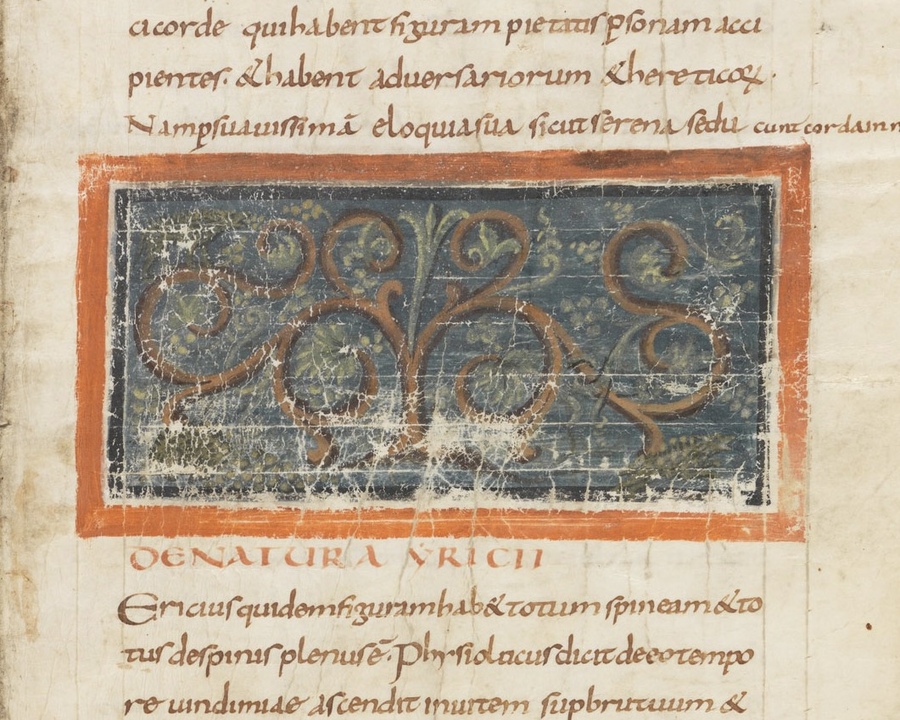 ci corde qui habent figuram pietatis p̱sonam acci
pientes. & habent adversariorum & hereticoꝝ.
Nam p suavissimā eloquia sua sicut serena seducunt corda inn
DE NATURA YRICII
Ericius quidem figuram hab& totum spineam & to
tus de spinis plenus ē. Physiologus dicit de eo tempo
re vindimiae ascendit in vitem sup brutuum &